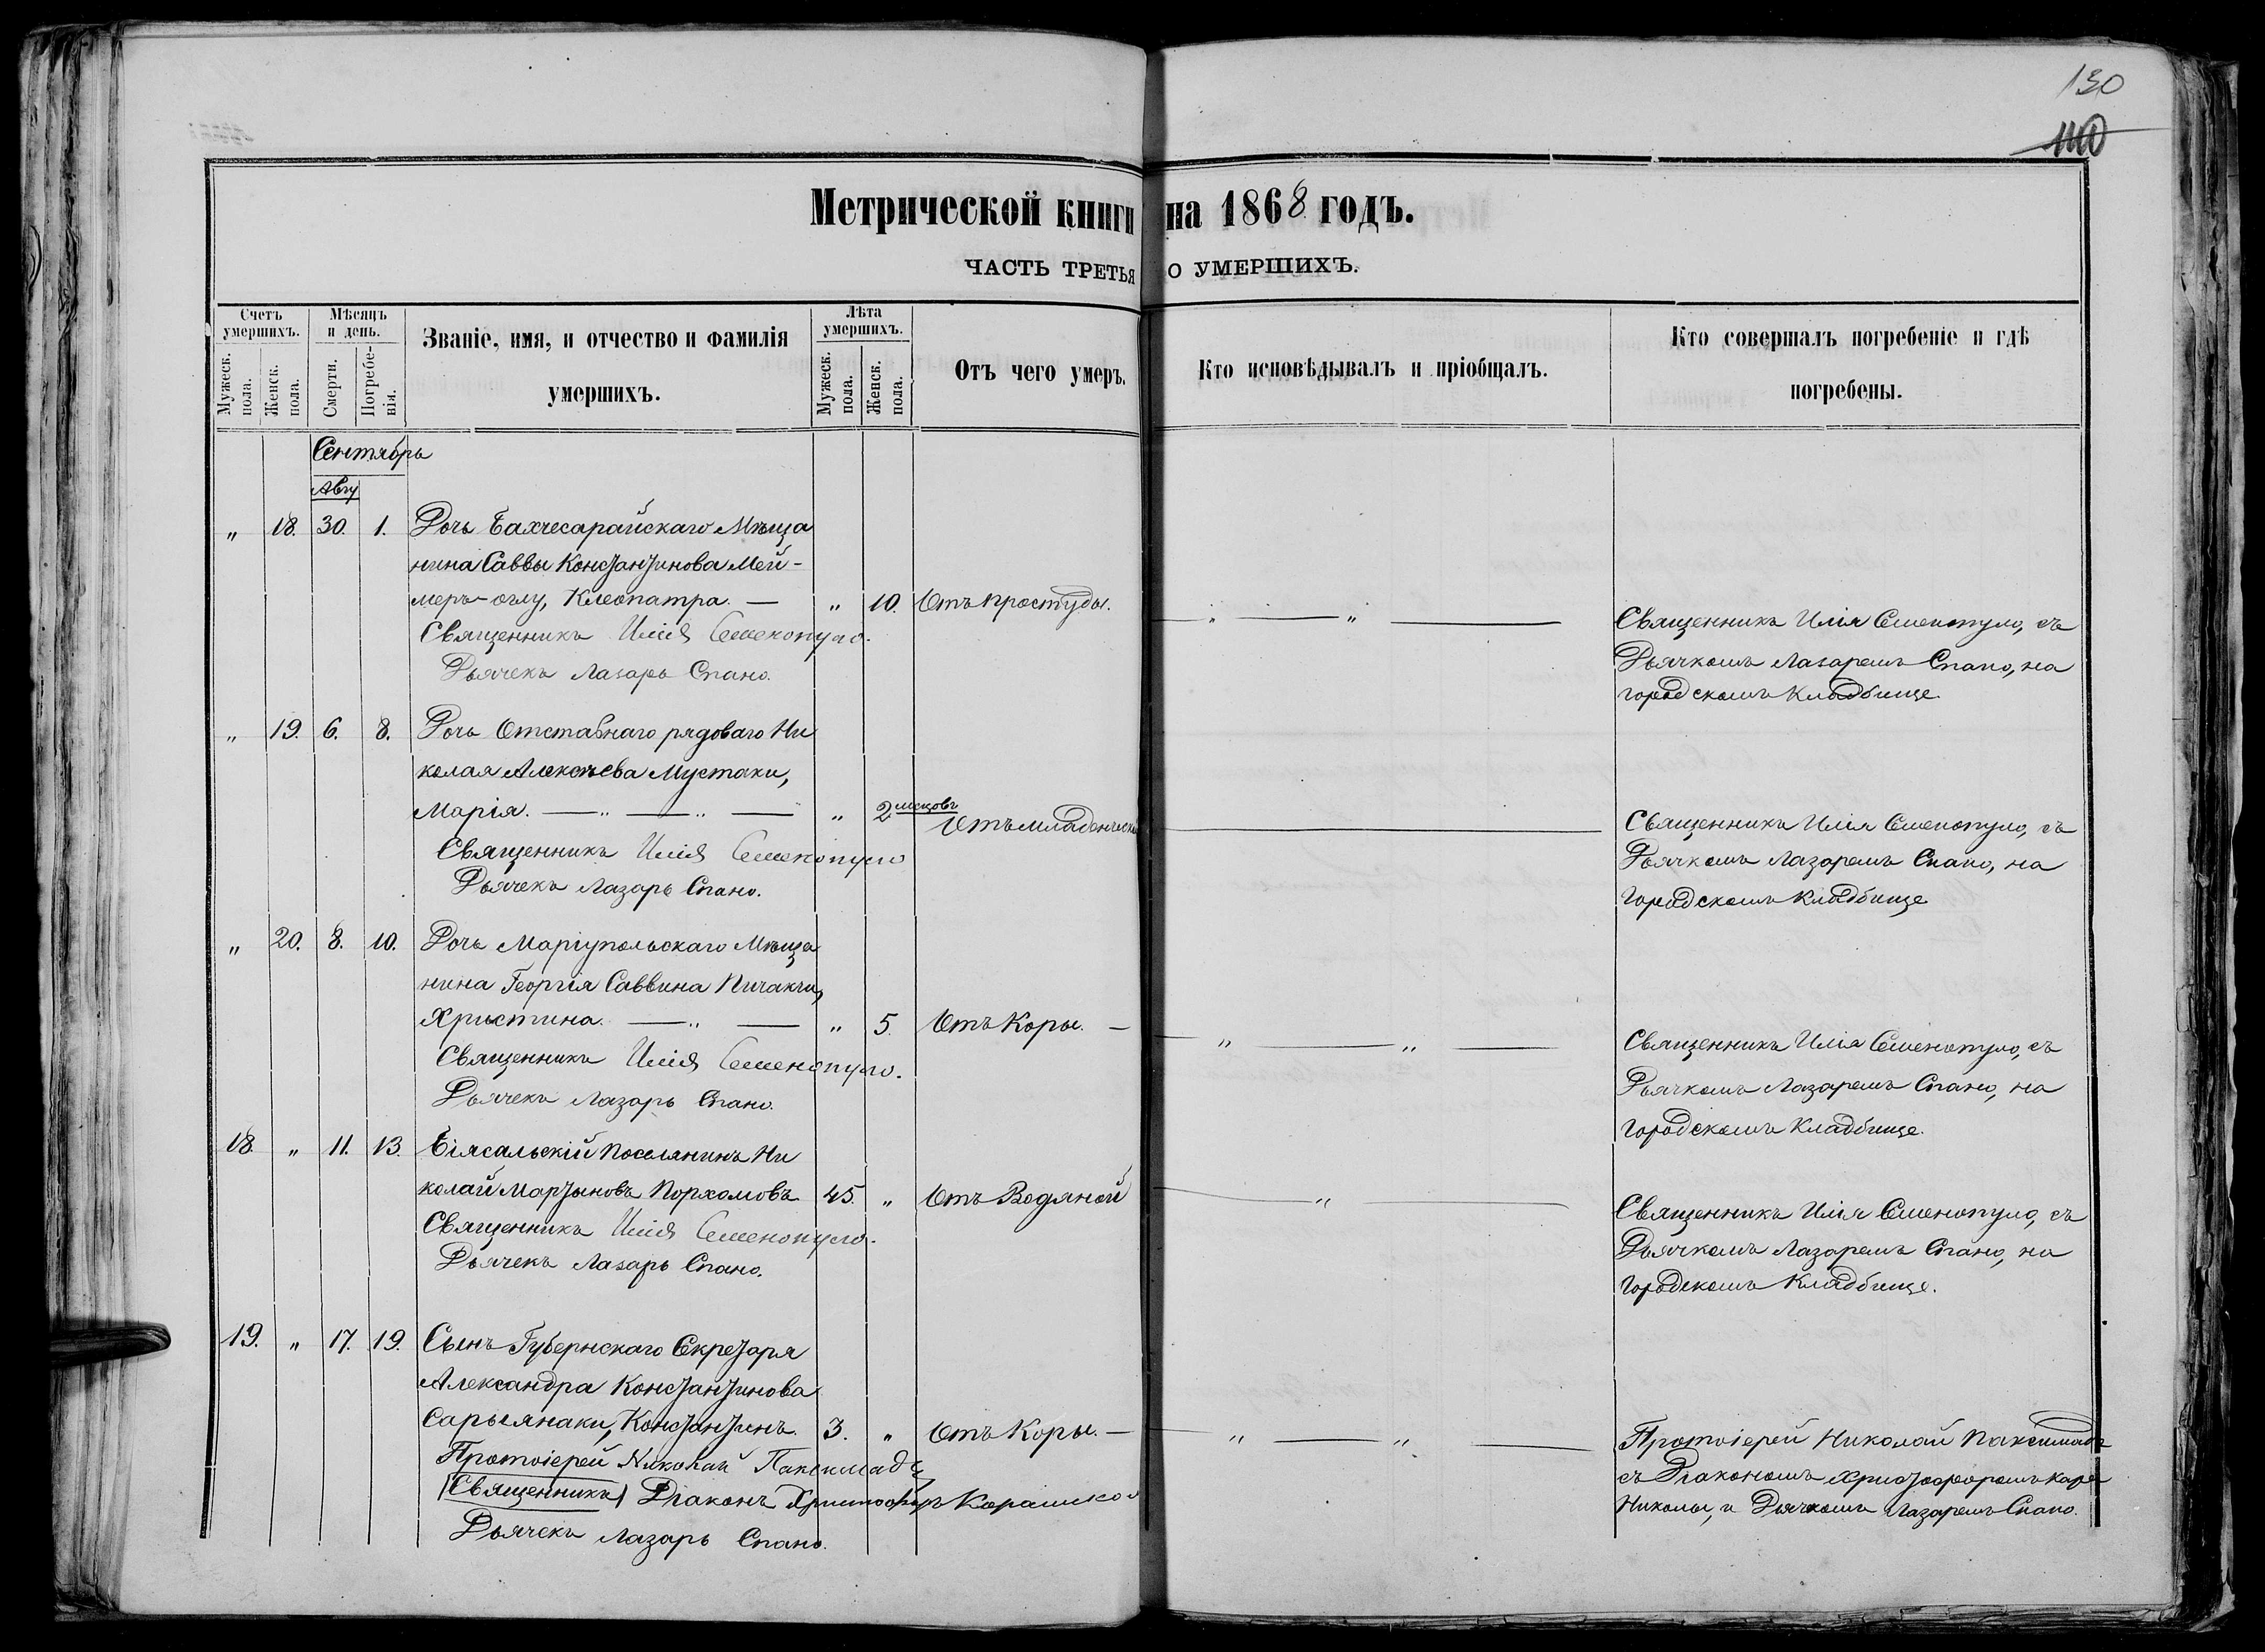 130
110
Метрической книги на 1868 годъ.
ЧАСТЬ ТРЕТЬЯ О УМЕРШИХЪ.
Счетъ умершихъ.
Мужеск. пола.
Женск. пола.
Мѣсяцъ и день.
Смерти.
Погребе-нія.
Званіе, имя, и отчество и фамилія
умершихъ.
Лѣта умершихъ.
Мужеск. пола.
Женск. пола.
Отъ чего умеръ.
Кто исповѣдывалъ и пріобщалъ.
Кто совершалъ погребеніе и гдѣ
погребены.
Сентябрь
Авгу
" 18. 30. 1. Дочь Бахчесарайскаго Мѣща
нина Саввы Константинова Мей-
меръ-оглу, Клеопатра. — " 10. Отъ простуды. — " — " —
Священникъ Илія Семенопуло.
Дьячекъ Лазарь Спано.
Священникъ Илія Семенопуло, съ
Дьячкомъ Лазаремъ Спано, на
городскомъ Кладбище.
" 19. 6. 8. Дочь Отставнаго рядоваго Ни
колая Алексѣева Мустаки,
Марія. — " — " — " 2 мѣсцовъ Отъ младенческ
Священникъ Илія Семенопуло
Дьячекъ Лазарь Спано.
Священникъ Илія Семенопуло, съ
Дьячкомъ Лазаремъ Спано, на
Городскомъ Кладбище
" 20. 8. 10. Дочь Маріупольскаго Мѣща
нина Георгія Саввина Пичакчи,
Христина. — " — " 5. Отъ Коры. — " — " —
Священникъ Илія Семенопуло.
Дьячекъ Лазарь Спано.
Священникъ Илія Семенопуло, съ
Дьячкомъ Лазаремъ Спано, на
Городскомъ Кладбище.
18. " 11. 13. Біясальскій Поселянинъ Ни
колай Мартыновъ Порхомовъ 45. " Отъ Водяной — " —
Священникъ Илія Семенопуло.
Дьячекъ Лазарь Спано.
Священникъ Илія Семенопуло, съ
Дьячкомъ Лазаремъ Спано, на
Городскомъ Кладбище.
19. " 17. 19. Сынъ Губернскаго Секретаря
Александра Константинова
Сарыянаки, Константинъ. 3. " Отъ Коры. — " — " —
Протоіерей Николай Паксимадъ
(Священникъ) Діаконъ Христофоръ
Дьячекъ Лазарь Спано.
Протоіерей Николай Паксимадъ
съ Діакономъ Христофоромъ Кара
Николы, и Дьячкомъ Лазаремъ Спано.